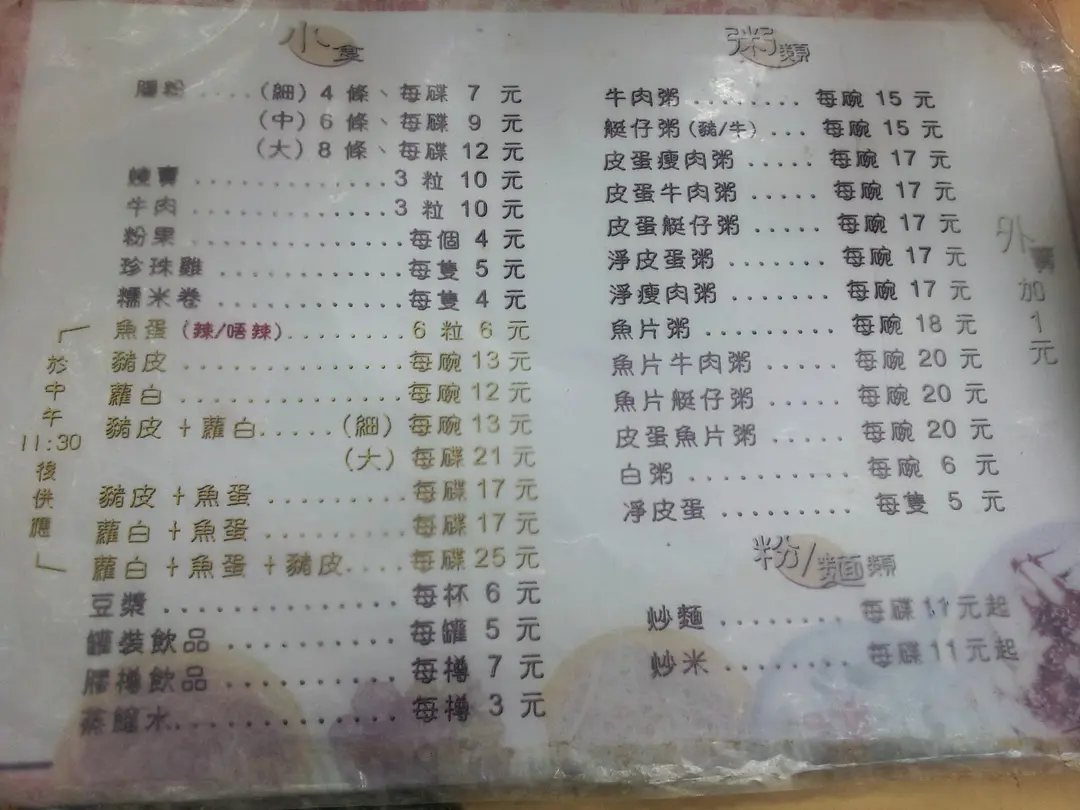 小食
腸粉....(細)4 條、每碟 7 元
(中)6 條、每碟 9 元
(大)8 條、每碟 12 元
燒賣.............3 粒 10 元
牛肉.............3 粒 10 元
粉果.............每個 4 元
珍珠雞............每隻 5 元
糯米卷............每隻 4 元
魚蛋(辣/唔辣)........6 粒 6 元
豬皮..............每碗 13 元
蘿白..............每碗 12 元
豬皮+蘿白.....(細)每碗 13 元
(大)每碟 21 元
豬皮+魚蛋.........每碟 17 元
蘿白+魚蛋.........每碟 17 元
蘿白+魚蛋+豬皮....每碟 25 元
「於中午11:30後供應」
豆漿..............每杯 6 元
罐裝飲品...........每罐 5 元
膠樽飲品...........每樽 7 元
蒸餾水.............每樽 3 元
粥類
牛肉粥........每碗 15 元
艇仔粥(豬/牛)...每碗 15 元
皮蛋瘦肉粥.....每碗 17 元
皮蛋牛肉粥.....每碗 17 元
皮蛋艇仔粥.....每碗 17 元
淨皮蛋粥.......每碗 17 元
淨瘦肉粥.......每碗 17 元
魚片粥.........每碗 18 元
魚片牛肉粥.....每碗 20 元
魚片艇仔粥.....每碗 20 元
皮蛋魚片粥.....每碗 20 元
白粥...........每碗 6 元
淨皮蛋.........每隻 5 元
外賣加1元
粉/麵類
炒麵........每碟11元起
炒米........每碟11元起